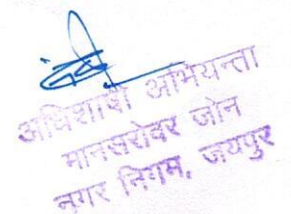 अधिशाषी अभियन्ता
मानसरोवर जोन
नगर निगम, जयपुर